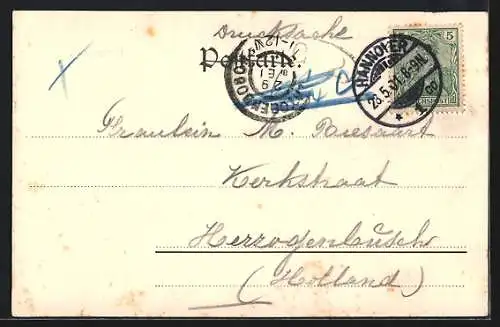 Drucksache
Postkarte.
HANNOVER
28.5.01.8-9N.
* 1 oo
5
Fraulein M.
Kerkstraat
Herzogenbusch
(Holland)